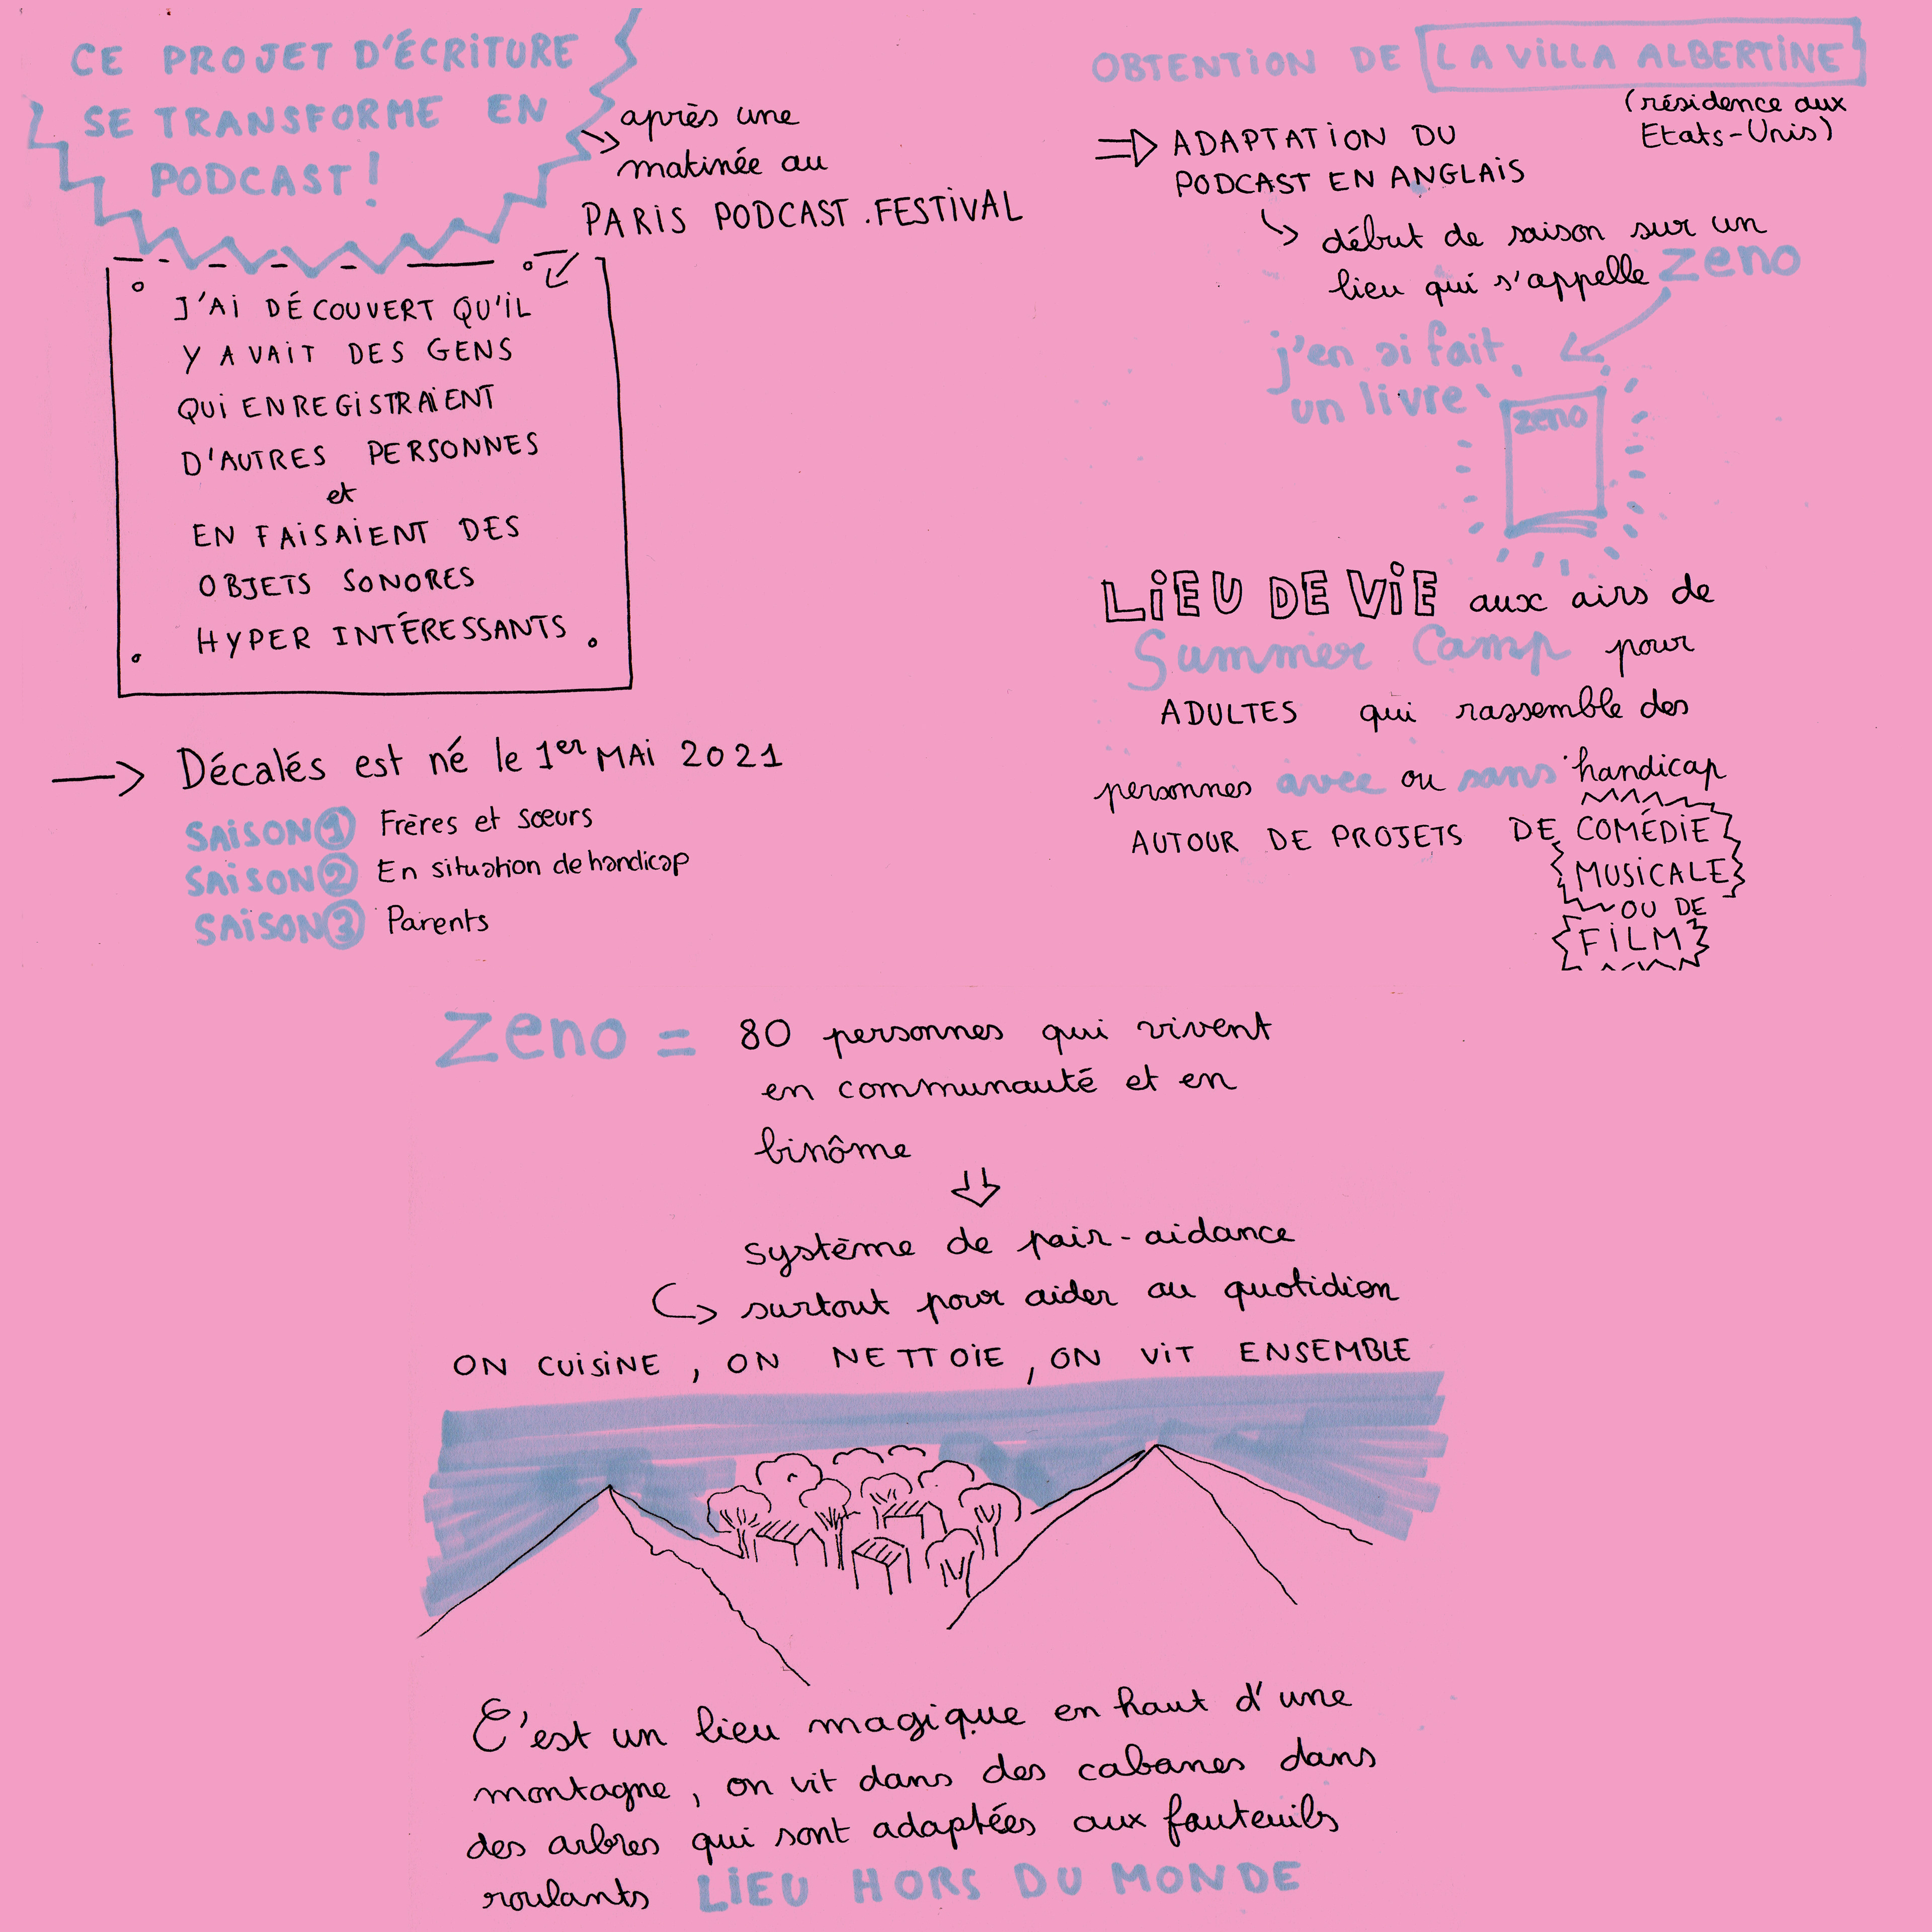 CE PROJET D'ÉCRITURE
SE TRANSFORME EN
PODCAST !
après une
matinée au
PARIS PODCAST.FESTIVAL
J'AI DÉCOUVERT QU'IL
Y AVAIT DES GENS
QUI ENREGISTRAIENT
D'AUTRES PERSONNES
et
EN FAISAIENT DES
OBJETS SONORES
HYPER INTÉRESSANTS
Décalés est né le 1er MAI 2021
SAISON 1 Frères et sœurs
SAISON 2 En situation de handicap
SAISON 3 Parents
OBTENTION DE LA VILLA ALBERTINE
(résidence aux
Etats-Unis)
⇒ ADAPTATION DU
PODCAST EN ANGLAIS
début de saison sur un
lieu qui s'appelle zeno
j'en ai fait
un livre
zeno
LIEU DE VIE aux airs de
Summer Camp pour
ADULTES qui rassemble des
personnes avec ou sans handicap
AUTOUR DE PROJETS DE COMÉDIE
MUSICALE
OU DE
FILM
Zeno = 80 personnes qui vivent
en communauté et en
binôme
système de pair-aidance
surtout pour aider au quotidien
ON CUISINE, ON NETTOIE, ON VIT ENSEMBLE
C'est un lieu magique en haut d'une
montagne, on vit dans des cabanes dans
des arbres qui sont adaptées aux fauteuils
roulants LIEU HORS DU MONDE